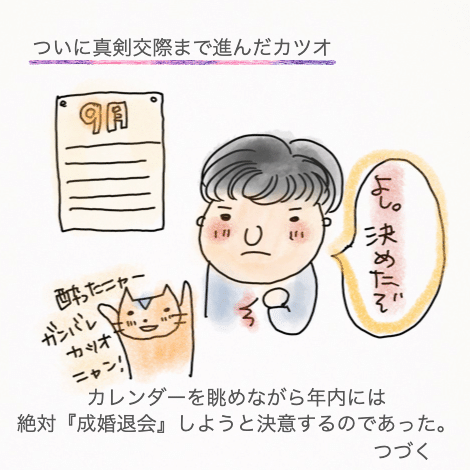 ついに真剣交際まで進んだカツオ
9月
よし。
決めたぞ
酔ったニャー
ガンバレ
カツオ
ニャン!
カレンダーを眺めながら年内には
絶対『成婚退会』しようと決意するのであった。
つづく